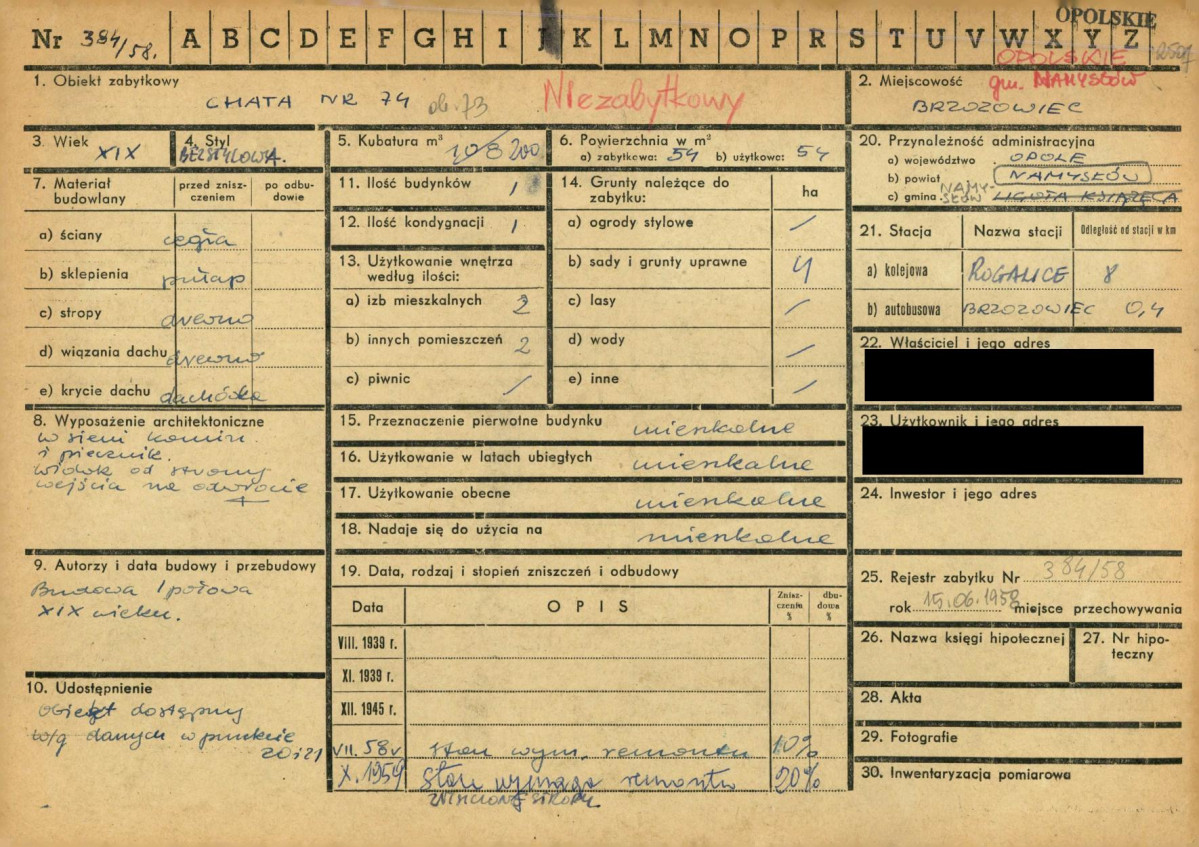 OPOLSKIE
Nr 384/58. A B C D E F G H I J K L M N O P R S. T U V W X Y Z
OPOLSKIE
1. Obiekt zabytkowy
CHATA NR 74 ob. 73 Niezabytkowy
2. Miejscowość gm. NAMYSŁÓW
BRZOZOWIEC
3. Wiek XIX
4. Styl BEZSTYLOWA.
5. Kubatura m³ 108 200
6. Powierzchnia w m²
a) zabytkowa: 54 b) użytkowa: 54
20. Przynależność administracyjna
a) województwo OPOLE
b) powiat NAMYSŁÓW
c) gmina NAMY-SŁÓW LIGOTA KSIĄŻĘCA
7. Materiał budowlany
przed zniszczeniem
po odbudowie
a) ściany cegła
b) sklepienia pułap
c) stropy drewno
d) wiązania dachu drewno
e) krycie dachu dachówka
11. Ilość budynków 1
12. Ilość kondygnacji 1
13. Użytkowanie wnętrza według ilości:
a) izb mieszkalnych 2
b) innych pomieszczeń 2
c) piwnic /
14. Grunty należące do zabytku: ha
a) ogrody stylowe /
b) sady i grunty uprawne 4
c) lasy /
d) wody /
e) inne /
21. Stacja Nazwa stacji Odległość od stacji w km
a) kolejowa ROGALICE 8
b) autobusowa BRZOZOWIEC 0,4
22. Właściciel i jego adres
23. Użytkownik i jego adres
24. Inwestor i jego adres
8. Wyposażenie architektoniczne
w sieni komin
i piecznik.
widok od strony
wejścia na odwrocie
15. Przeznaczenie pierwotne budynku mieszkalne
16. Użytkowanie w latach ubiegłych mieszkalne
17. Użytkowanie obecne mieszkalne
18. Nadaje się do użycia na mieszkalne
9. Autorzy i data budowy i przebudowy
Budowa I połowa
XIX wieku.
10. Udostępnienie
Obiekt dostępny
w/g danych w punkcie
20 i 21
19. Data, rodzaj i stopień zniszczeń i odbudowy
Data OPIS Zniszczenia % dbudowa %
VIII. 1939 r.
XI. 1939 r.
XII. 1945 r.
VII. 58 r stan wym. remontu 10%
X. 1959 Stan wymaga remontu 20%
25. Rejestr zabytku Nr 384/58
rok 15.06.1958 miejsce przechowywania
26. Nazwa księgi hipotecznej
27. Nr hipoteczny
28. Akta
29. Fotografie
30. Inwentaryzacja pomiarowa